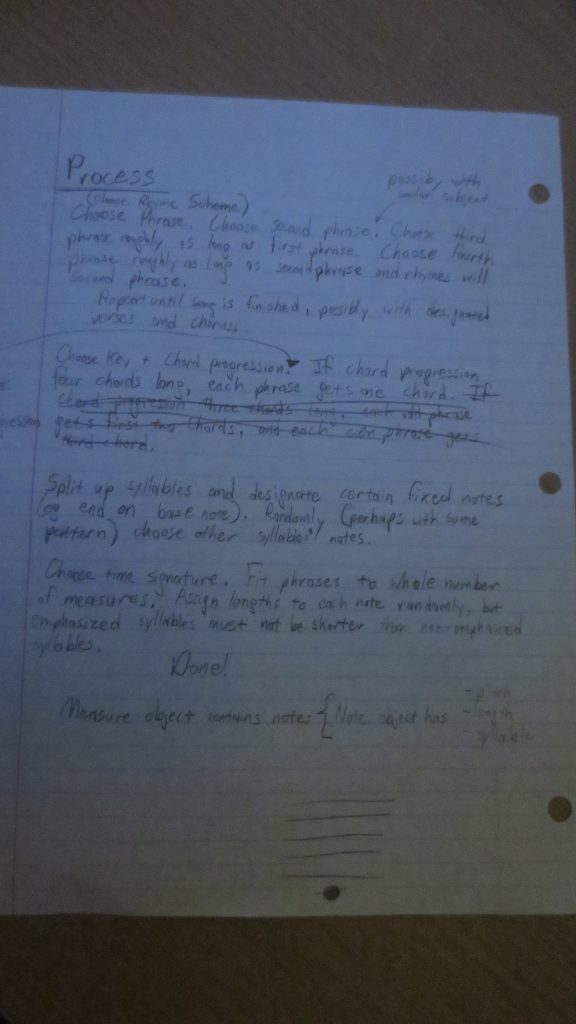 Process
possibly with
similar subject
(Choose Rhyme Scheme)
Choose Phrase. Choose second phrase. Choose third
phrase roughly as long as first phrase. Choose fourth
phrase roughly as long as second phrase and rhymes will
second phrase.
Repeat until song is finished, possibly with designated
verses and chorus.
Choose Key + Chord progression. If chord progression
four chords long, each phrase gets one chord. If
chord progression three chords long, each odd phrase
gets first two chords, and each even phrase gets
third chord.
Split up syllables and designate certain fixed notes
(eg end on base note). Randomly (perhaps with some
pattern) choose other syllables' notes.
Choose time signature. Fit phrases to whole number
of measures. Assign lengths to each note randomly, but
emphasized syllables must not be shorter than non-emphasized
syllables.
Done!
Measure object contains notes { Note object has
- pitch
- length
- syllable